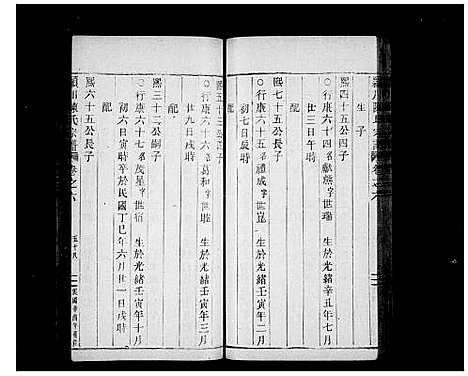 潁川陳氏宗譜卷之六
生子
熙四十五公四子
○行康六十四名獻熊字世瑞 生於光緒辛丑年七月
廿三日午時
配
熙七十五公長子
○行康六十五名禮成字世崑 生於光緒壬寅年二月
初七日辰時
配
熙五十三公長子
○行康六十六名葛和字世聯 生於光緒壬寅年三月
廿九日戌時
配
熙三十二公嗣子
○行康六十七名茂星字世宿 生於光緒壬寅年十月
初六日寅時卒於民國丁巳年六月廿一日戌時
配
熙六十五公長子
潁川陳氏宗譜卷之六
五十八